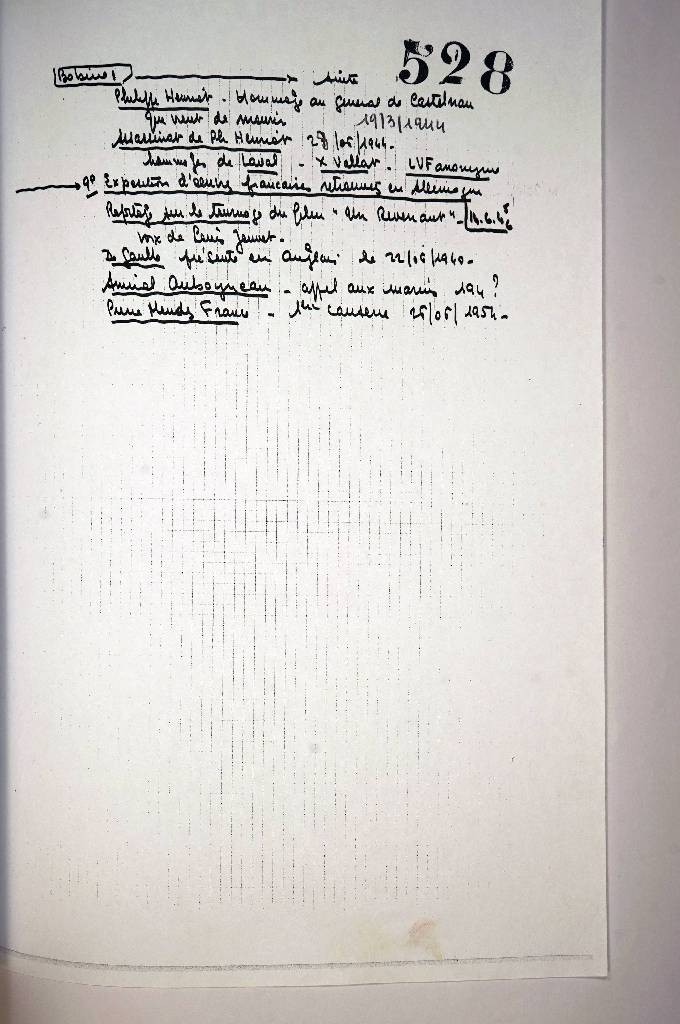 528
Bobine 1 → suite
Philippe Henriot - Hommage au général de Castelnau
qui vient de mourir 19/3/1944
Assassinat de Ph Henriot 28/06/1944.
hommages de Laval - X Vallat. LVF anonyme
→ 9° Exposition d'œuvres françaises retrouvées en Allemagne
Reportage sur le tournage du film "Un Revenant" -
voix de Louis Jouvet.
De Gaulle présenté en anglais le 22/06/1940.
Amiral Auboyneau - appel aux marins 194 ?
Pierre Mendes France - 1ère causerie 26/06/1954 -